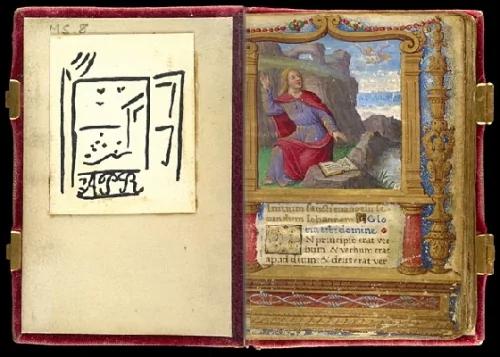 MS. 8
APR
Initium sancti euangelii se
cundum Iohannem Glo
ria tibi domine
N principio erat ver
bum & verbum erat
apud deum: & deus erat ver